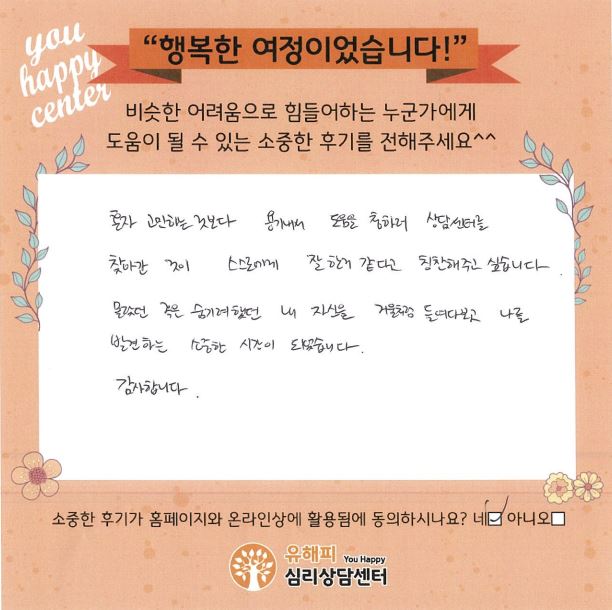 you
happy
center
“행복한 여정이었습니다!”
비슷한 어려움으로 힘들어하는 누군가에게
도움이 될 수 있는 소중한 후기를 전해주세요^^
혼자 고민하는 것보다 용기내서 도움을 청하러 상담센터를
찾아간 것이 스스로에게 잘 한거 같다고 칭찬해주고 싶습니다.
몰랐던 혹은 숨기려했던 내 자신을 거울처럼 들여다보고 나를
발견하는 소중한 시간이 되었습니다.
감사합니다.
소중한 후기가 홈페이지와 온라인상에 활용됨에 동의하시나요? 네☑ 아니오☐
유해피 You Happy
심리상담센터